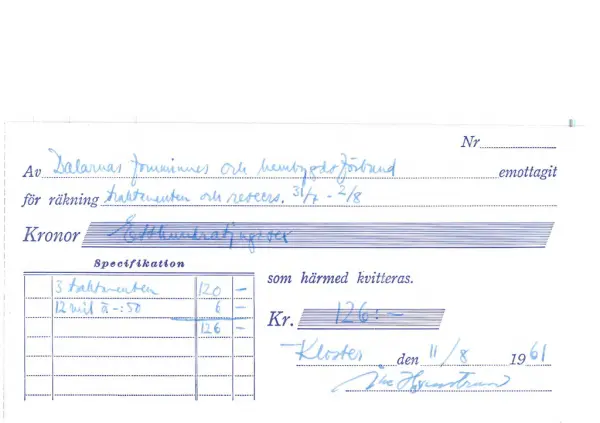 Nr
Av Dalarnas fornminnes och hembygdsförbund emottagit
för räkning traktamenten och reseers. 31/7 - 2/8
Kronor Etthundratjugosex
Specifikation
3 traktamenten 120 -
12 mil à -:50 6 -
126 -
som härmed kvitteras.
Kr. 126:-
Kloster den 11/8 1961